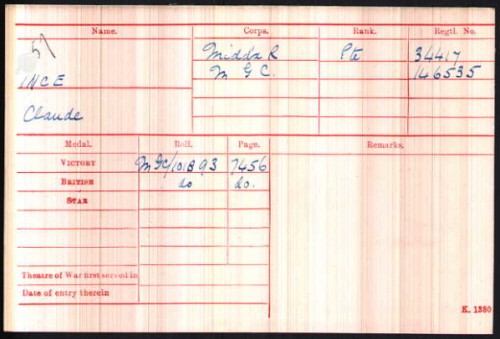 Name. Corps. Rank. Regtl. No.
57
INCE Middx R Pte 34417
M G C. 146535
Claude
Medal. Roll. Page. Remarks.
VICTORY MGC/101B93 7456
BRITISH do do.
STAR
Theatre of War first served in
Date of entry therein
K. 1380